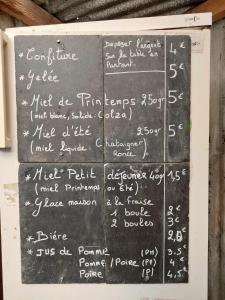 * Confiture
Déposer l'argent
sur la table en
partant.
4€
* Gelée
5€
* Miel de Printemps 250gr
5€
(miel blanc, solide: Colza)
* Miel d'été 250gr
5€
(miel liquide Chataignier
Ronce)
* Miel Petit déjeuner 40g
1,5€
(miel Printemps ou été)
* Glace maison à la fraise
1 boule 2€
2 boules 3€
* Bière
* Jus de Pomme (PM) 3,5€
Pomme/Poire (PP) 4€
Poire (P) 4,5€